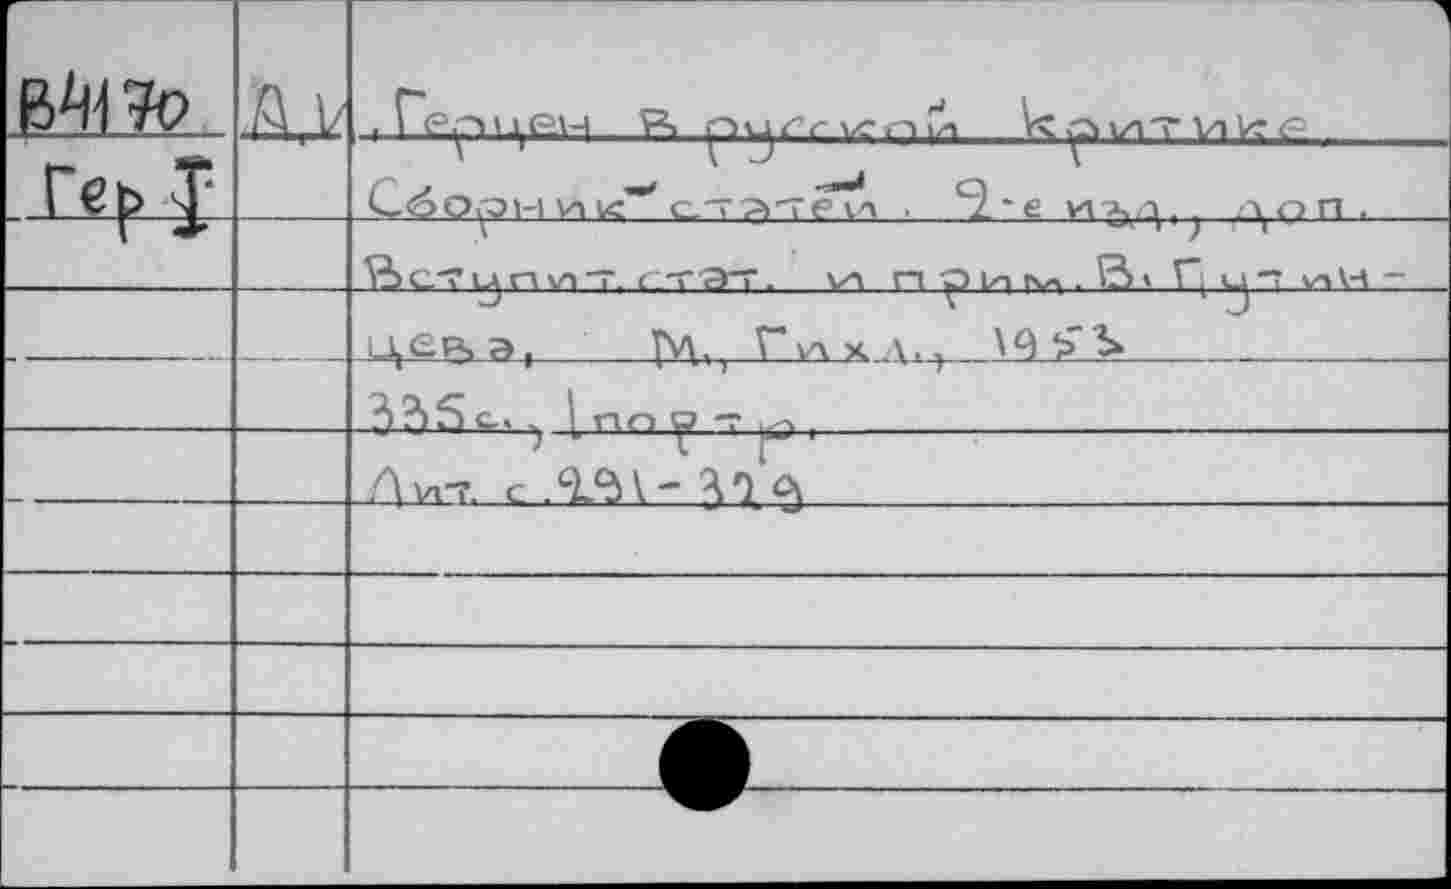 В4170 А.И. Герцен в русской критике.
Гер I Сборник статей. 2-е изд., доп.
Вступит. стат. и прим. В. Путин-
цева, М., Гихл., 1953
335с., 1 портр.
Лит. с. 291-329